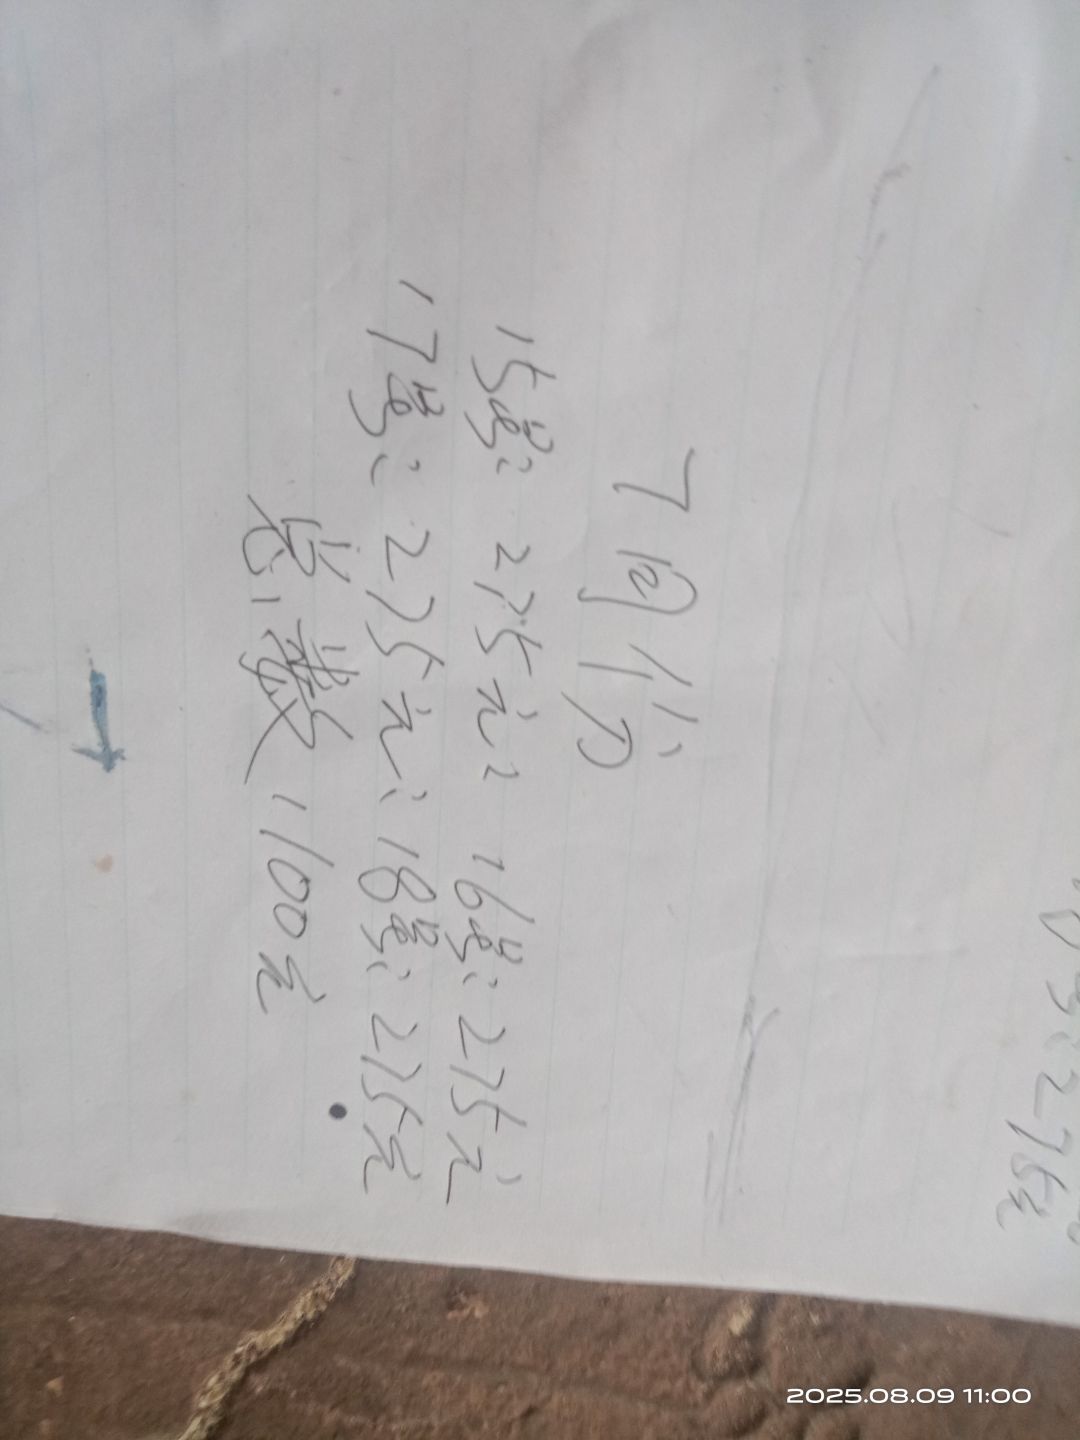 7月份
15号:275元: 16号:275元
17号:275元:18号:275元
总数1100元
号:275元
2025.08.09 11:00